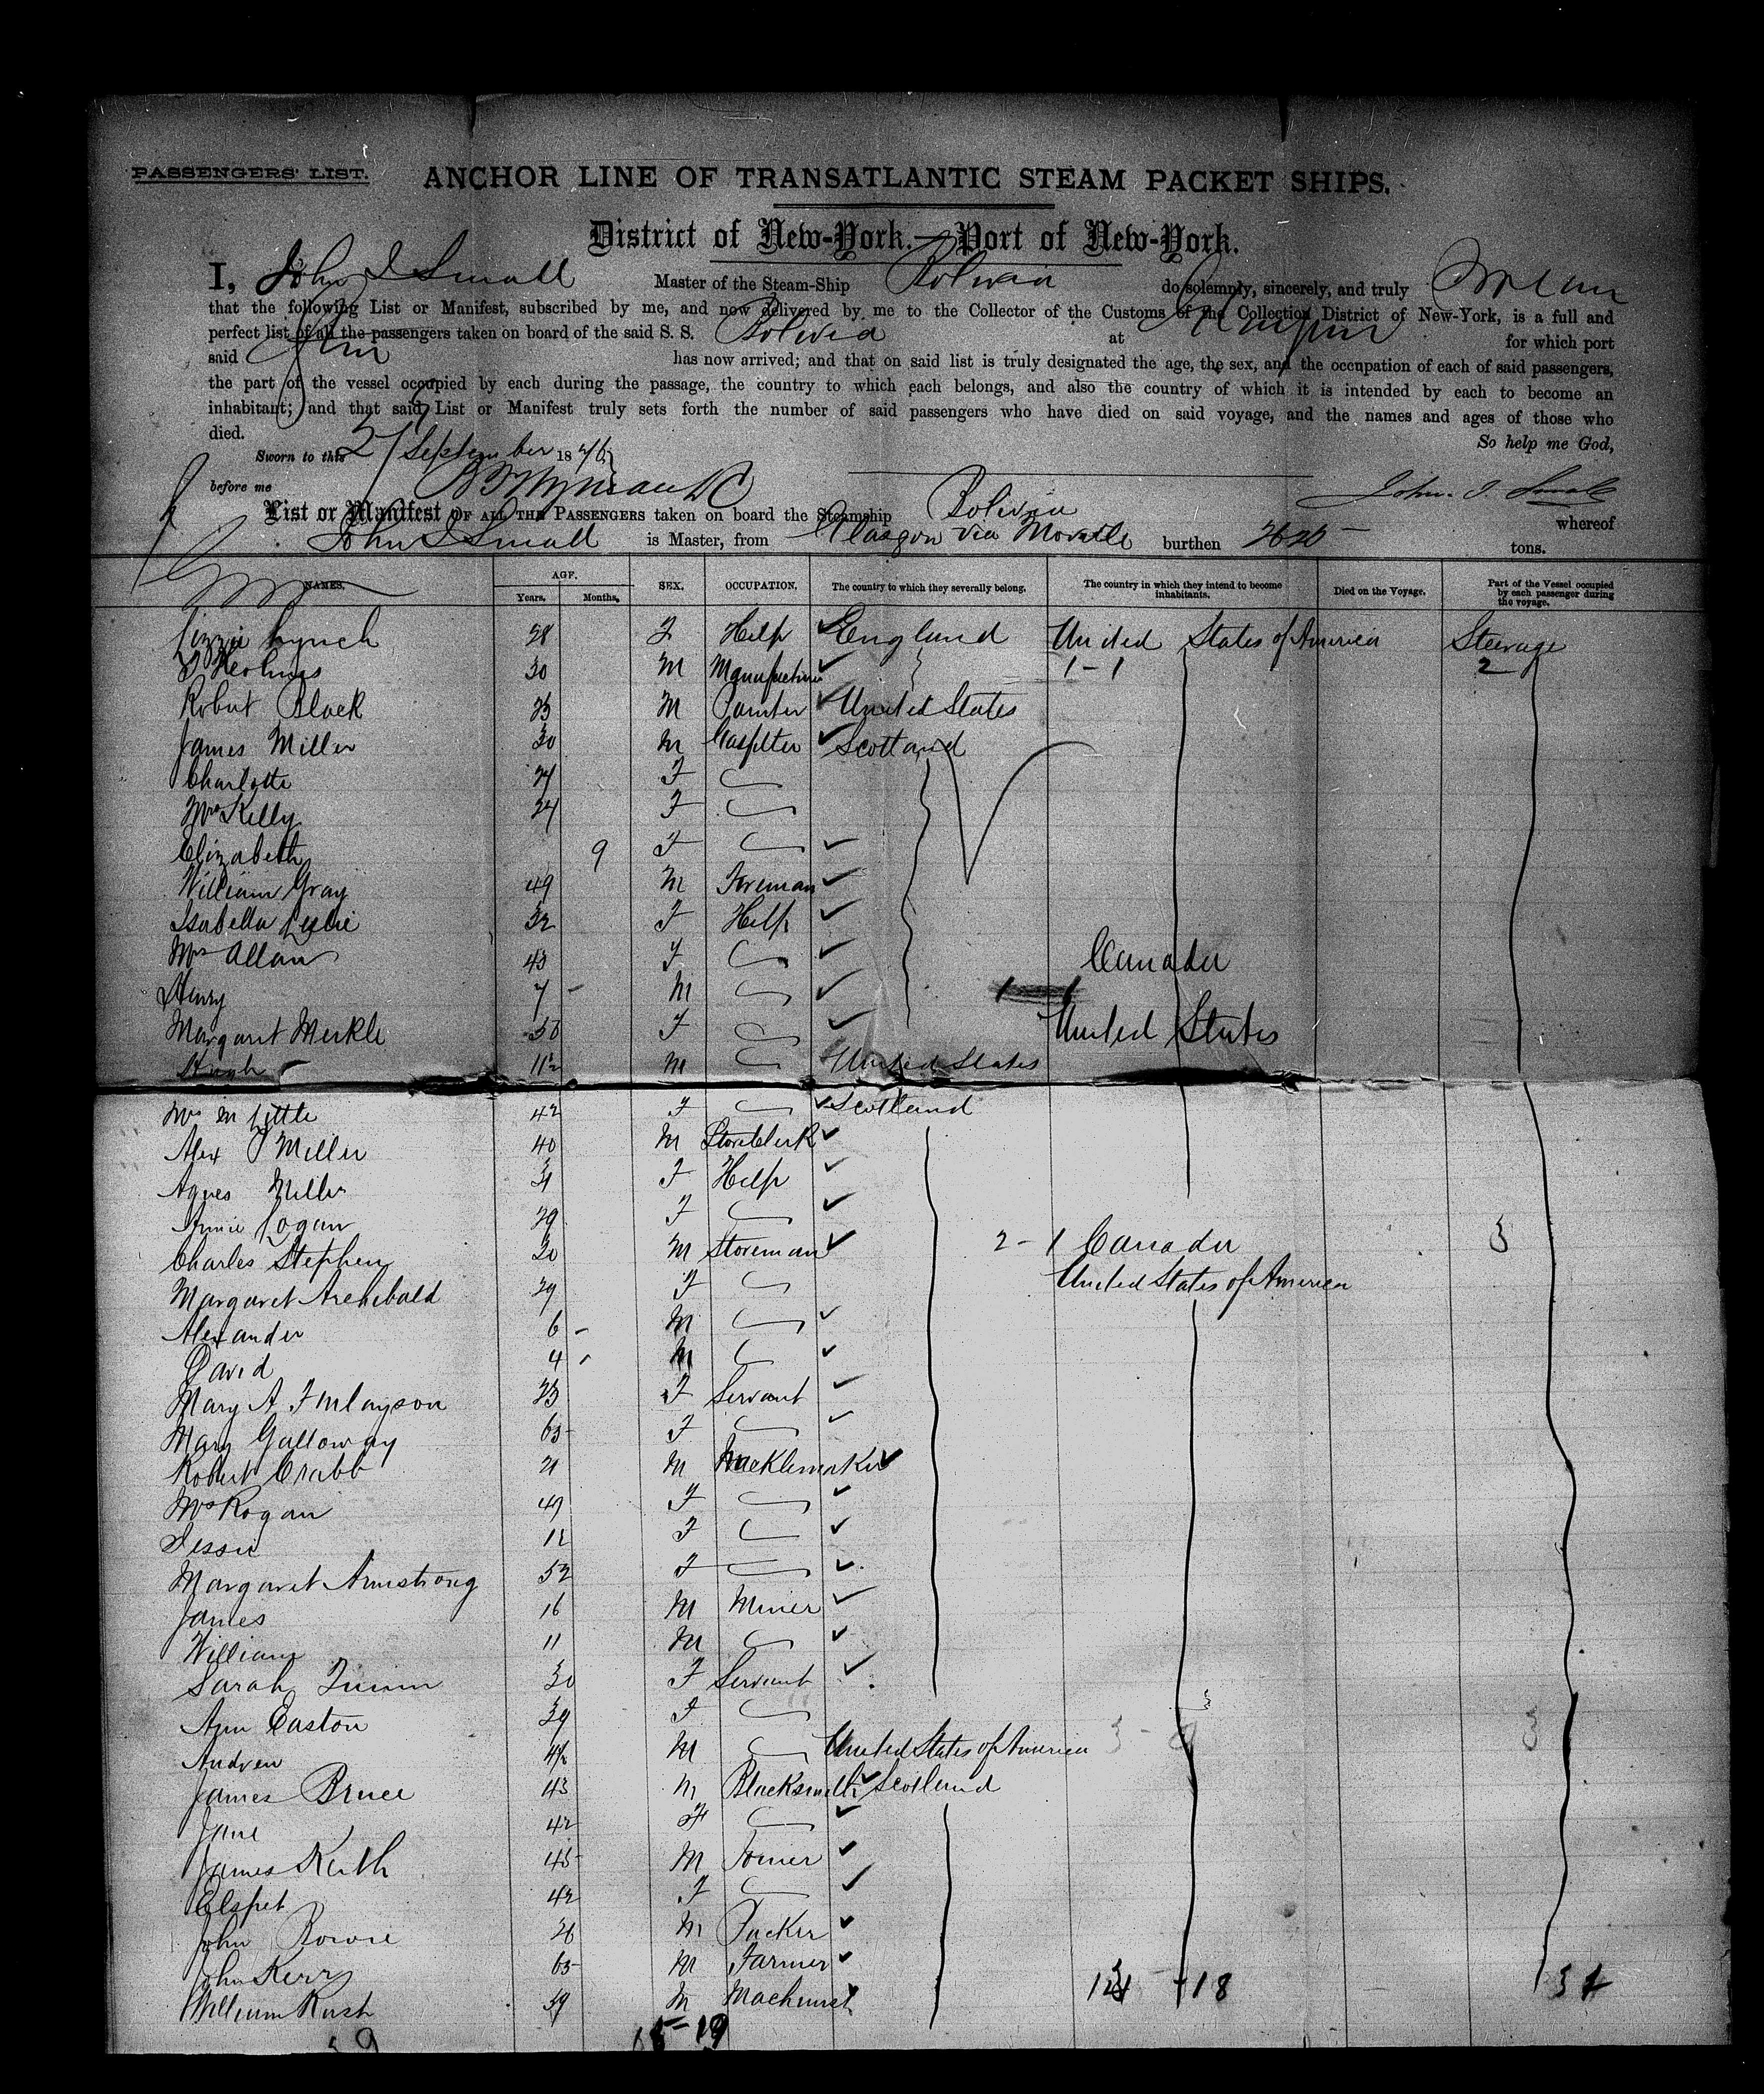 PASSENGERS' LIST. ANCHOR LINE OF TRANSATLANTIC STEAM PACKET SHIPS.
District of New-York.—Port of New-York.
I, John I Small Master of the Steam-Ship Bolivia do solemnly, sincerely, and truly
that the following List or Manifest, subscribed by me, and now delivered by me to the Collector of the Customs of the Collection District of New-York, is a full and
perfect list of all the passengers taken on board of the said S. S. Bolivia at Glasgow for which port
said has now arrived; and that on said list is truly designated the age, the sex, and the occupation of each of said passengers,
the part of the vessel occupied by each during the passage, the country to which each belongs, and also the country of which it is intended by each to become an
inhabitant; and that said List or Manifest truly sets forth the number of said passengers who have died on said voyage, and the names and ages of those who
died. So help me God,
Sworn to this 27 September 1876
before me John. I. Small
List or Manifest OF ALL THE PASSENGERS taken on board the Steamship Bolivia whereof
John I Small is Master, from Glasgow via Moville burthen 2626 tons.
NAMES. AGE. Years. Months. SEX. OCCUPATION. The country to which they severally belong. The country in which they intend to become inhabitants. Died on the Voyage. Part of the Vessel occupied by each passenger during the voyage.
Lizzie Lynch 28 F Help England United States of America Steerage
30 M 1-1 2
Robert Black M Painter United States
James Miller 30 M Gasfitter Scotland
Charlotte F
Mrs Kelly 24 F
Elizabeth 9 F
William Gray 49 M Foreman
Isabella Leslie 32 F Help
Mrs Allan 43 F Canada
Henry 7 M
Margaret Meikle F United States
Hugh 11½ M United States
Mrs M Little 42 F Scotland
Alex P Miller 40 M Store Clerk
Agnes Miller F Help
Annie Logan 29 F
Charles Stephen M Storeman 2-1 Canada 3
Margaret Archibald 29 F United States of America
Alexander 6 M
David 4 M
Mary A. Finlayson F Servant
Mary Galloway 65 F
Robert Crabb 21 M
Mrs Rogan 49 F
Jessie F
Margaret Armstrong 52 F
James 16 M Miner
William 11 M
Sarah Quinn 30 F Servant
Ann Easton 39 F
Andrew 4½ M United States of America
James Bruce 43 M Blacksmith Scotland
Jane 42 F
James Keith 45 M Joiner
Elspet 42 F
John Bowie 26 M Packer
John Kerr 65 M Farmer
William Rush 39 M Machinist
-18
-19